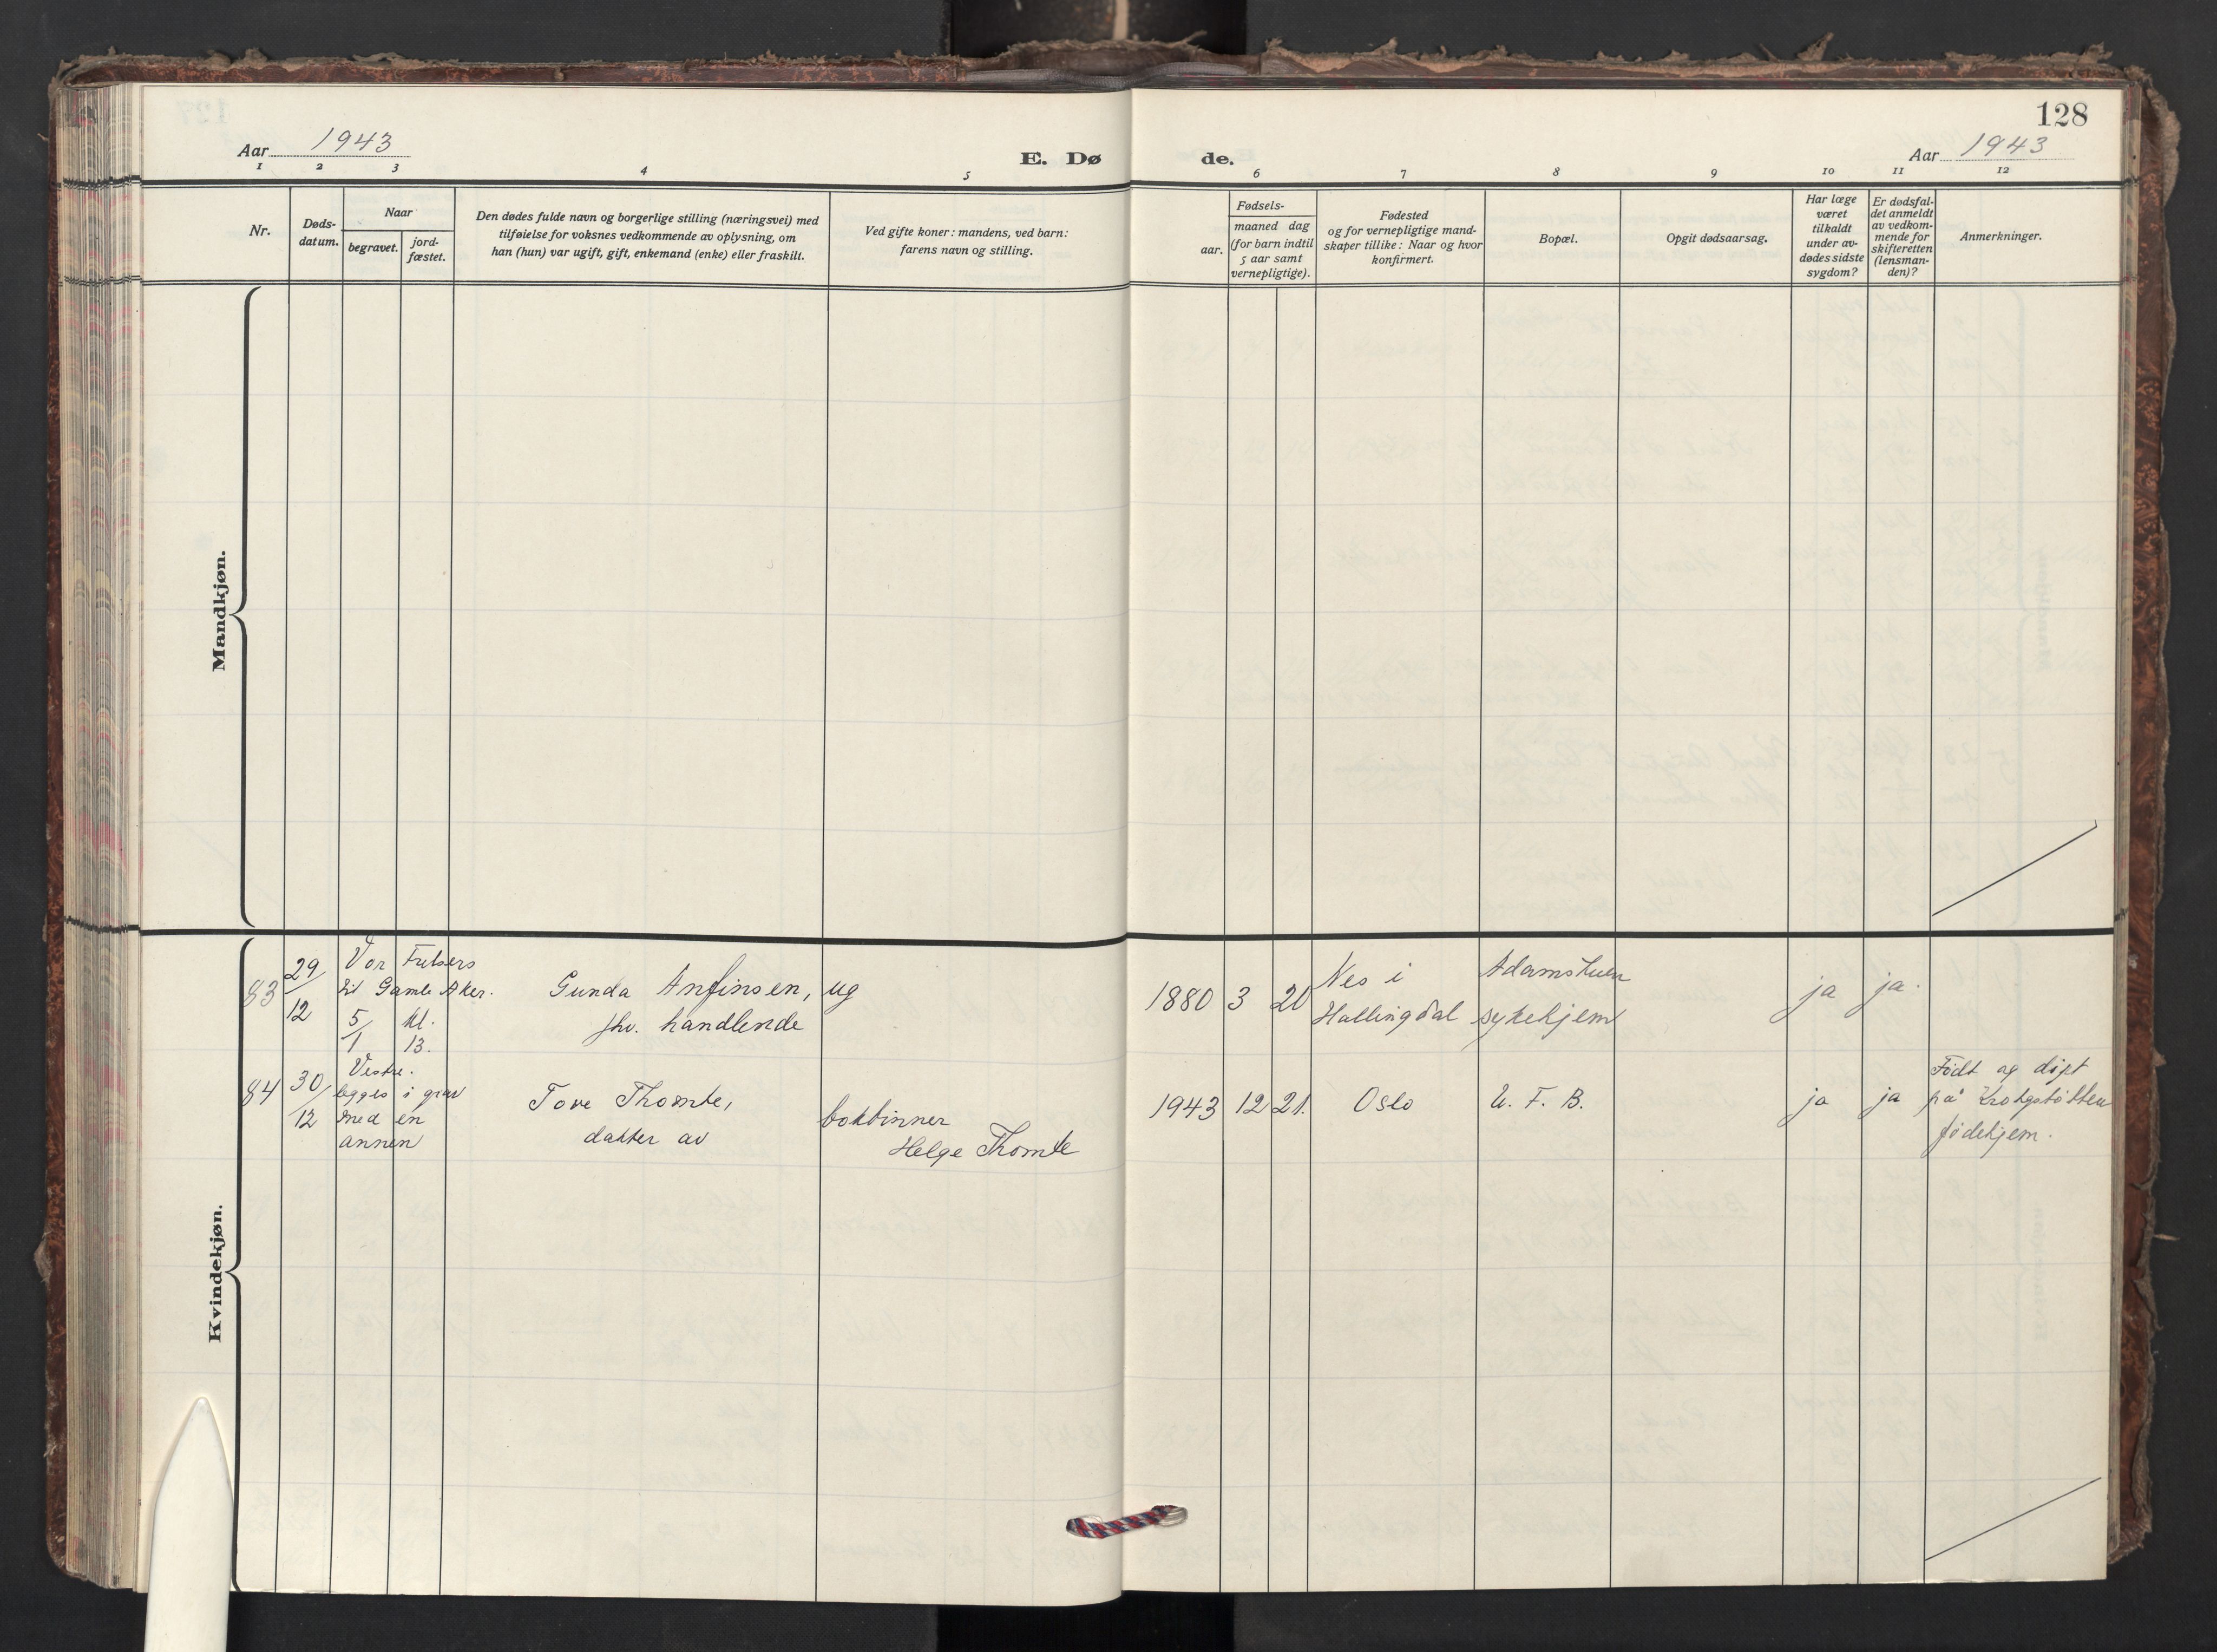 128
Aar 1943
E. Dø
de.
Aar 1943
1 2 3 4 5 6 7 8 9 10 11 12
Nr.
Døds-
datum.
Naar
begravet.
jord-
fæstet.
Den dødes fulde navn og borgerlige stilling (næringsvei) med
tilføielse for voksnes vedkommende av oplysning, om
han (hun) var ugift, gift, enkemand (enke) eller fraskilt.
Ved gifte koner: mandens, ved barn:
farens navn og stilling.
Fødsels-
aar.
maaned dag
(for barn indtil
5 aar samt
vernepligtige).
Fødested
og for vernepligtige mand-
skaper tillike: Naar og hvor
konfirmert.
Bopæl.
Opgit dødsaarsag.
Har læge
været
tilkaldt
under av-
dødes sidste
sygdom?
Er dødsfal-
det anmeldt
av vedkom-
mende for
skifteretten
(lensman-
den)?
Anmerkninger.
Mandkjøn.
Kvindekjøn.
83
29/12
Vor Frelsers
til Gamle Aker.
5/1 kl. 13.
Gunda Anfinsen, ug
fhv. handlende
1880 3 20
Nes i
Hallingdal
Adamstuen
sykehjem
ja ja.
84
30/12
Vestre.
legges i grav
med en
annen
Tove Thomte,
datter av
bokbinner
Helge Thomte
1943 12 21.
Oslo
U. F. B.
ja ja
Født og døpt
på Krohgstøtten
fødehjem.